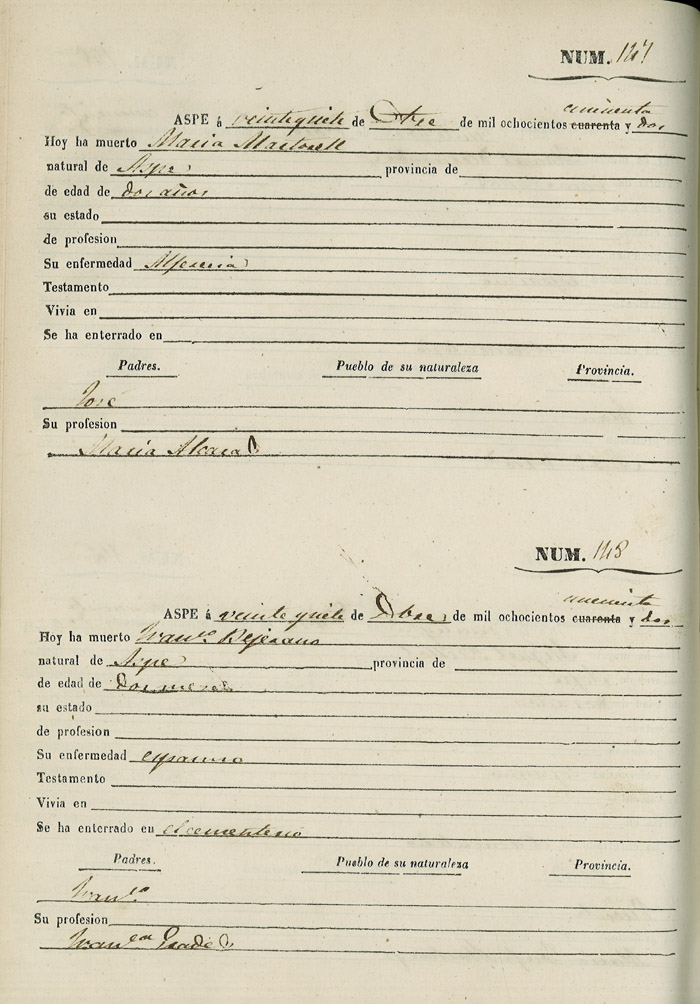 NUM. 147
cincuenta
ASPE á veintisiete de Otre de mil ochocientos cuarenta y dos
Hoy ha muerto Maria Martorell
natural de Aspe provincia de
de edad de dos años
su estado
de profesion
Su enfermedad Alferecia
Testamento
Vivia en
Se ha enterrado en
Padres. Pueblo de su naturaleza Provincia.
José
Su profesion
Maria
NUM. 148
cincuenta
ASPE á de de mil ochocientos cuarenta y dos
Hoy ha muerto Franco Bejerano
natural de Aspe provincia de
de edad de Dos meses
su estado
de profesion
Su enfermedad espasmo
Testamento
Vivia en
Se ha enterrado en el cementerio
Padres. Pueblo de su naturaleza Provincia.
Franco
Su profesion
Franca